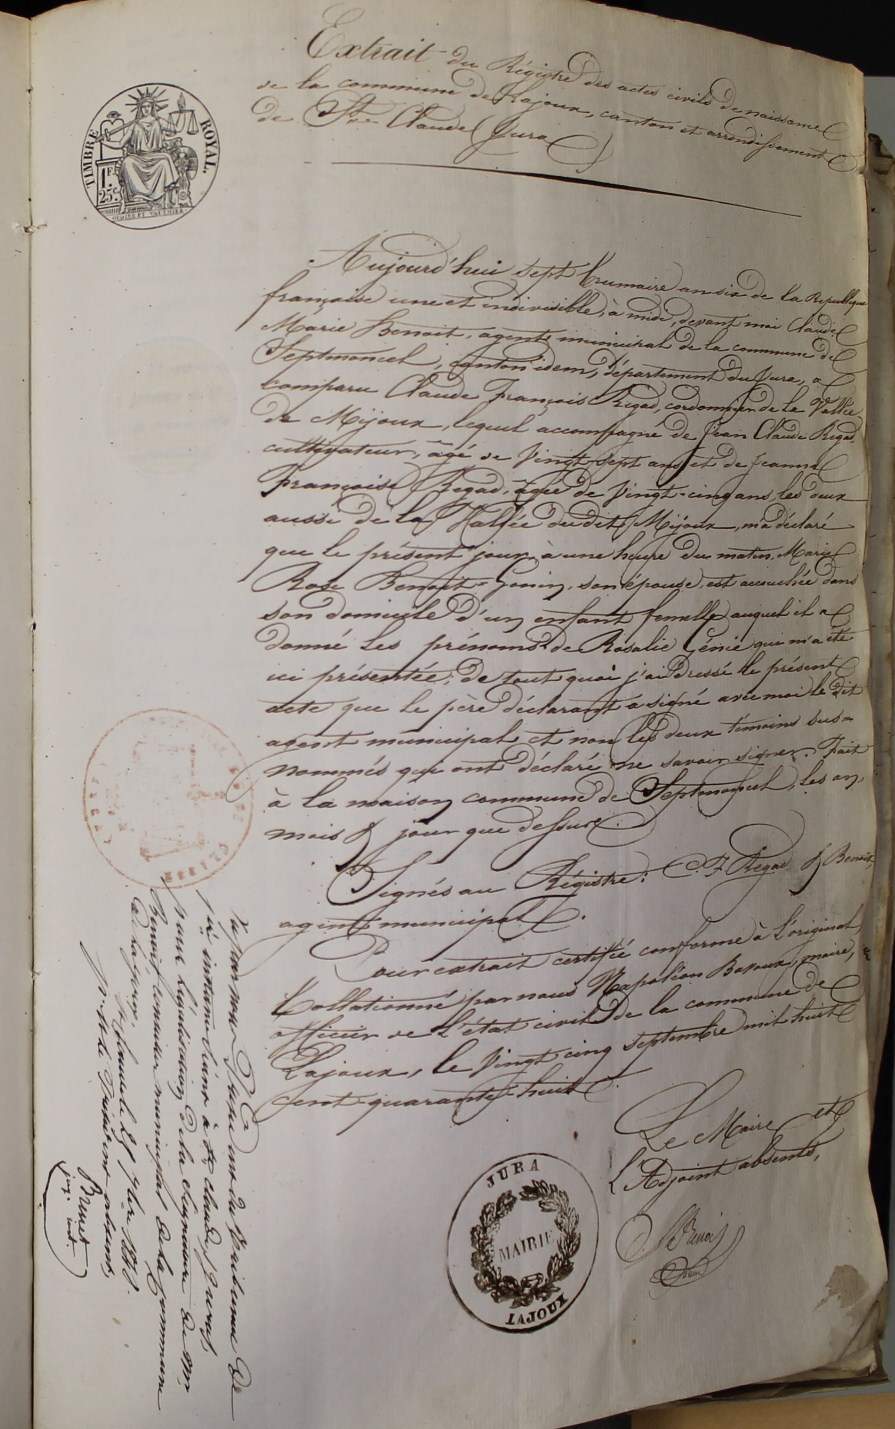 Extrait du Régistre des actes civils de naissance
de la commune de Lajoux, canton et arrondissement
de St. Claude (Jura)
TIMBRE ROYAL
1 Fr
25 c.
Aujourd'hui sept brumaire an six de la République
française une et indivisible, à midi, devant moi Claude
Marie Benoit, agent municipal de la commune de
Septmoncel, canton idem, département du Jura, a
comparu Claude François Regad, cordonnier de la Vallée
de Mijoux, lequel accompagné de Jean Claude Regad
cultivateur, âgé de vingt-sept ans et de Jeanne
Françoise Regad, âgée de vingt-cinq ans, les deux
aussi de la Vallée du dit Mijoux, m'a déclaré
que le présent jour à une heure du matin, Marie
Rose Benoit-Gonin, son épouse, est accouchée dans
son domicile d'un enfant femelle auquel il a
donné les prénoms de Rosalie Génie qui m'a été
ici présentée; de tout quoi j'ai dressé le présent
acte que le père déclarant a signé avec moi le dit
agent municipal et non les deux témoins sus-
nommés qui ont déclaré ne savoir signer. Fait
à la maison commune de Septmoncel, les an,
mois & jour que dessus.
Signés au Régistre: C. F. Regad & Benoit,
agent municipal.
Pour extrait certifié conforme à l'original,
Collationné par nous Napoléon maire,
officier de l'état civil de la commune de
Lajoux, le vingt cinq septembre mil huit
cent quarante-huit.
Le Maire et
l'Adjoint absents,
JURA
MAIRIE
LAJOUX
Vu par nous du tribunal de
1ère instance séant à St. Claude,
pour légalisation de la signature de Mr
Benoit, conseiller municipal de la commune
de Lajoux.
St Claude le 27 7bre 1848.
Brunet
juge